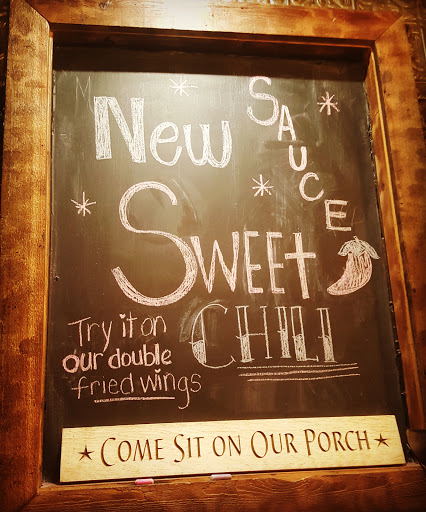 New SAUCE
SWEET
CHILI
Try it on
our double
fried wings
★ COME SIT ON OUR PORCH ★